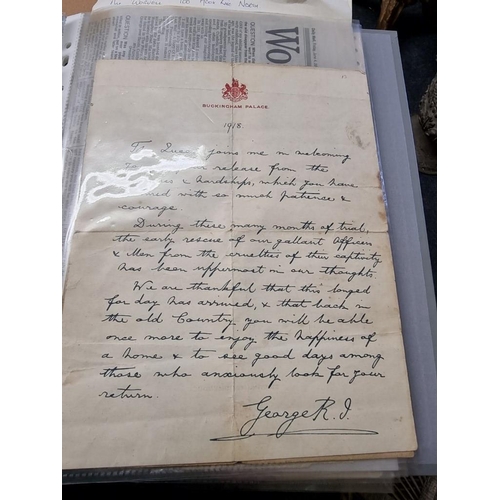 The Wolvern 100 Mile End North
QUESTION
Wo
BUCKINGHAM PALACE.
1918.
The Queen joins me in welcoming
release from the
& hardships, which you have
with so much patience &
courage.
During these many months of trial,
the early rescue of our gallant Officers
& Men from the cruelties of their captivity
has been uppermost in our thoughts.
We are thankful that this longed
for day has arrived, & that back in
the old Country you will be able
once more to enjoy the happiness of
a home & to see good days among
those who anxiously look for your
return.
George R.I.